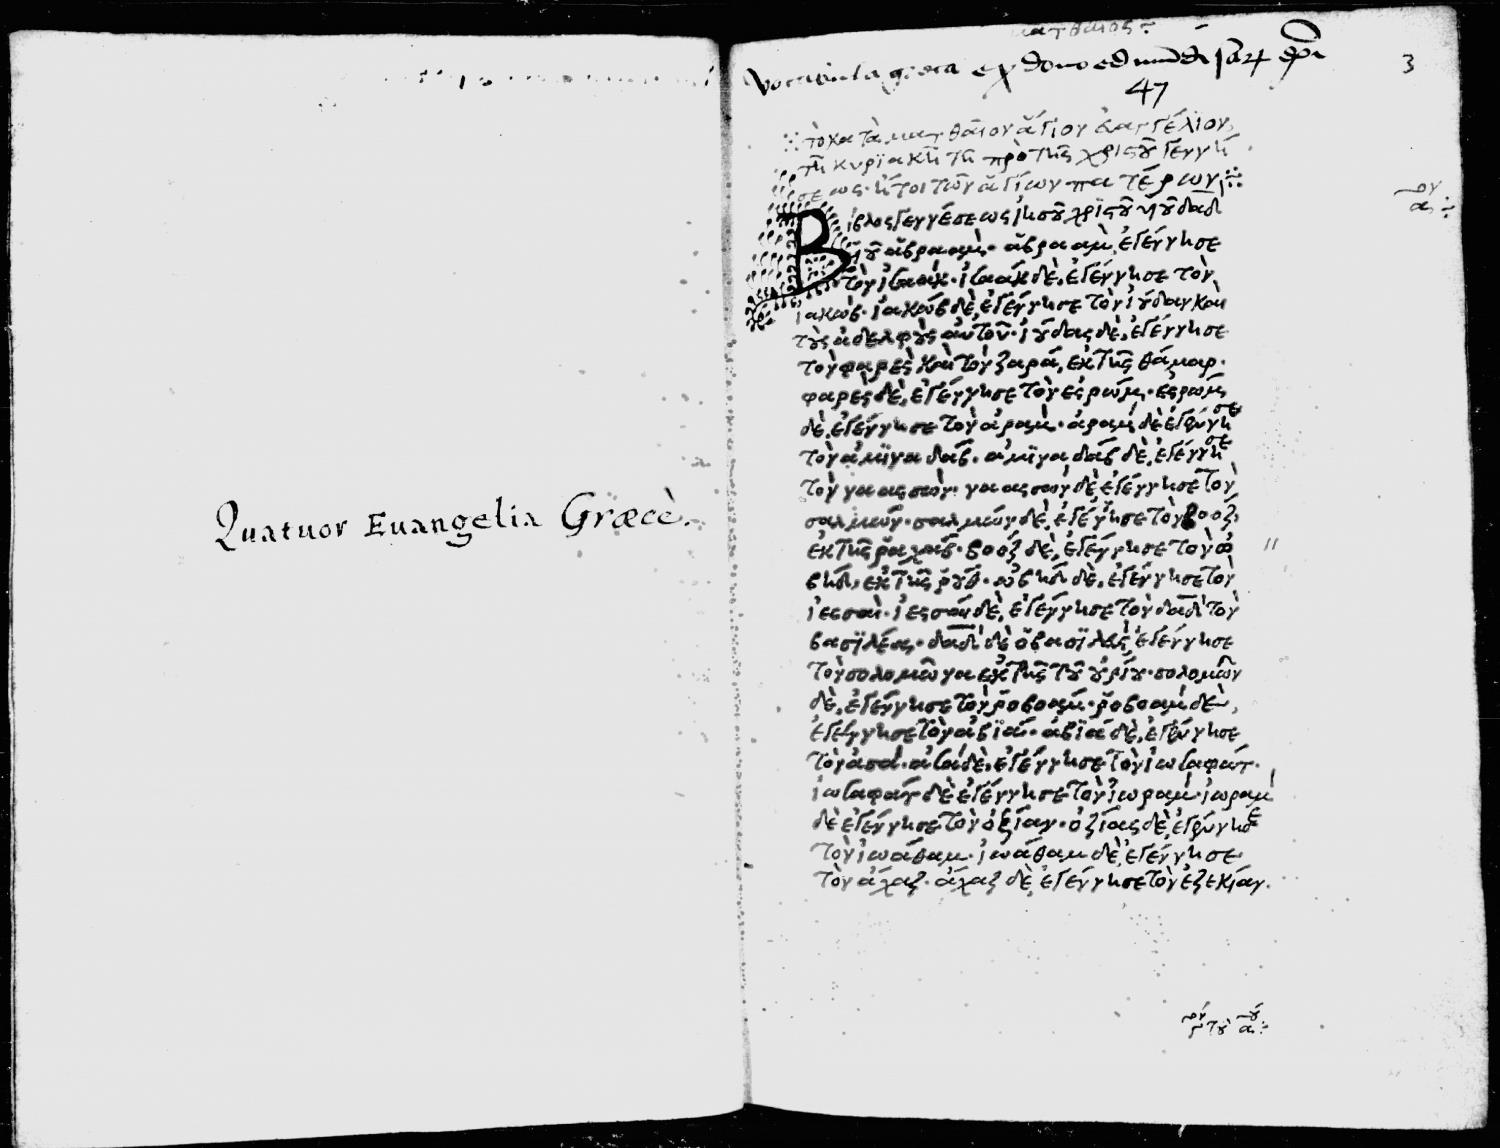 Quatuor Euangelia Græcè.
ματθαιος
Vocabula græca ex dono edmundi
3
47
τὸ κατὰ ματθαῖον ἅγιον εὐαγγέλιον
τῆ κυριακῆ τῆ πρὸ τῆς χριστοῦ γεννή
σεως ἤτοι τῶν ἁγίων πατέρων
Βίβλος γεννέσεως ἰησοῦ χριστοῦ υἱοῦ δαδ
υἱοῦ ἀβρααμ· ἀβρααμ ἐγέννησε
τὸν ἰσαάκ· ἰσαάκ δὲ, ἐγέννησε τὸν
ἰακώβ· ἰακώβ δὲ, ἐγέννησε τὸν ἰούδαν καὶ
τοὺς ἀδελφοὺς αὐτοῦ· ἰούδας δὲ, ἐγέννησε
τὸν φαρὲς καὶ τὸν ζαρά, ἐκ τῆς θάμαρ·
φαρὲς δὲ, ἐγέννησε τὸν ἐσρώμ· ἐσρώμ
δὲ, ἐγέννησε τὸν ἀραμ· ἀραμ δὲ ἐγέννησε
τὸν ἀμϊναδάβ· ἀμϊναδάβ δὲ, ἐγέννησε
τὸν ναασσών· ναασσών δὲ ἐγέννησε τὸν
σαλμών· σαλμών δὲ, ἐγέννησε τὸν βοόζ
ἐκ τῆς ῥαχάβ· βοόζ δὲ, ἐγέννησε τὸν ὠ
βὴδ, ἐκ τῆς ῥούθ· ὠβὴδ δὲ, ἐγέννησε τὸν
ἰεσσαὶ· ἰεσσαὶ δὲ, ἐγέννησε τὸν δαδ τὸν
βασϊλέα· δαδ δὲ ὁ βασϊλεὺς, ἐγέννησε
τὸν σολομῶνα ἐκ τῆς τοῦ οὐρίου· σολομῶν
δὲ, ἐγέννησε τὸν ῥοβοαμ· ῥοβοαμ δὲ,
ἐγέννησε τὸν ἀβϊά· ἀβϊά δὲ, ἐγέννησε
τὸν ἀσά· ἀσά δὲ, ἐγέννησε τὸν ἰωσαφάτ·
ἰωσαφάτ δὲ ἐγέννησε τὸν ἰωραμ· ἰωραμ
δὲ ἐγέννησε τὸν ὀζίαν· ὀζίας δὲ, ἐγέννησε
τὸν ἰωάθαμ· ἰωάθαμ δὲ, ἐγέννησε
τὸν ἀχαζ· ἀχαζ δὲ, ἐγέννησε τὸν ἐζεκίαν.